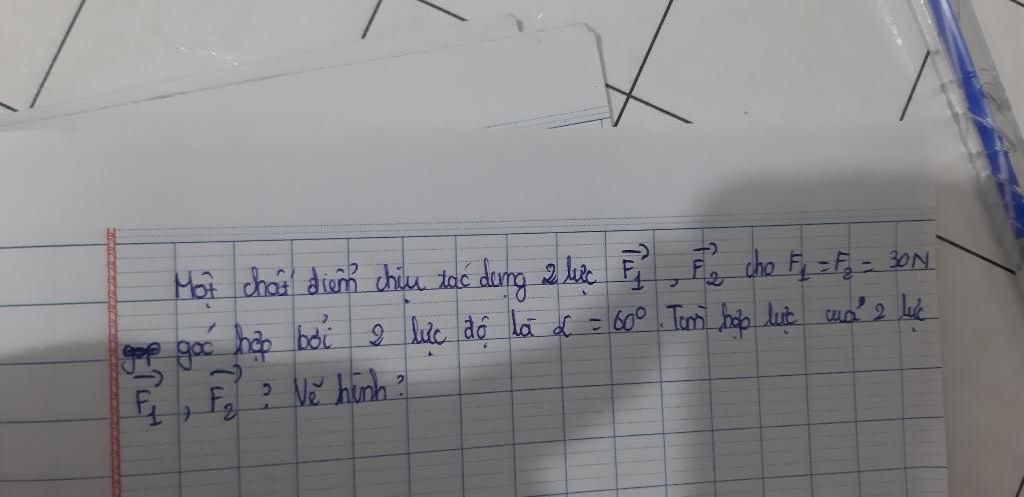 Một chất điểm chịu tác dụng 2 lực F₁, F₂ cho F₁ = F₂ = 30N
góc hợp bởi 2 lực độ là α = 60°. Tìm hợp lực của 2 lực
F₁, F₂ ? Vẽ hình?